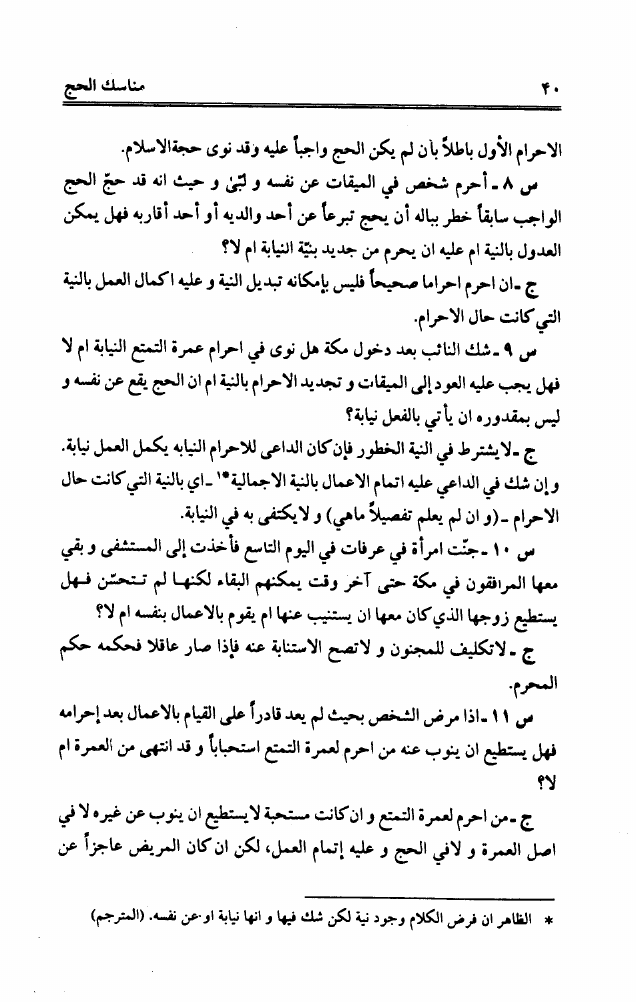 ۴۰ مناسك الحج
الاحرام الأول باطلاً بأن لم يكن الحج واجباً عليه وقد نوى حجةالاسلام.
س ۸ ـ أحرم شخص في الميقات عن نفسه و لبّىٰ و حيث انه قد حجّ الحج
الواجب سابقاً خطر بباله أن يحج تبرعاً عن أحد والديه أو أحد أقاربه فهل يمكن
العدول بالنية ام عليه ان يحرم من جديد بنيّة النيابة ام لا؟
ج ـ ان احرم احراما صحيحاً فليس بإمكانه تبديل النية و عليه اكمال العمل بالنية
التي كانت حال الاحرام.
س ۹ ـ شك النائب بعد دخول مكة هل نوى في احرام عمرة التمتع النيابة ام لا
فهل يجب عليه العود إلى الميقات و تجديد الاحرام بالنية ام ان الحج يقع عن نفسه و
ليس بمقدوره ان يأتي بالفعل نيابة؟
ج ـ لايشترط في النية الخطور فإن كان الداعى للاحرام النيابه يكمل العمل نيابة.
و إن شك في الداعي عليه اتمام الاعمال بالنية الاجمالية*۱ ـ اي بالنية التي كانت حال
الاحرام ـ (و ان لم يعلم تفصيلاً ماهي) و لايكتفى به في النيابة.
س ۱۰ ـ جنّت امرأة في عرفات في اليوم التاسع فأخذت إلى المستشفى و بقي
معها المرافقون في مكة حتى آخر وقت يمكنهم البقاء لكنها لم تتحسّن فهل
يستطيع زوجها الذي كان معها ان يستنيب عنها ام يقوم بالاعمال بنفسه ام لا؟
ج ـ لاتكليف للمجنون و لاتصح الاستنابة عنه فإذا صار عاقلا فحكمه حكم
المحرم.
س ۱۱ ـ اذا مرض الشخص بحيث لم يعد قادراً على القيام بالاعمال بعد إحرامه
فهل يستطيع ان ينوب عنه من احرم لعمرة التمتع استحباباً و قد انتهى من العمرة ام
لا؟
ج ـ من احرم لعمرة التمتع و ان كانت مستحبة لايستطيع ان ينوب عن غيره لا في
اصل العمرة و لافي الحج و عليه إتمام العمل، لكن ان كان المريض عاجزاً عن
* الظاهر ان فرض الكلام وجود نية لكن شك فيها و انها نيابة او عن نفسه. (المترجم)